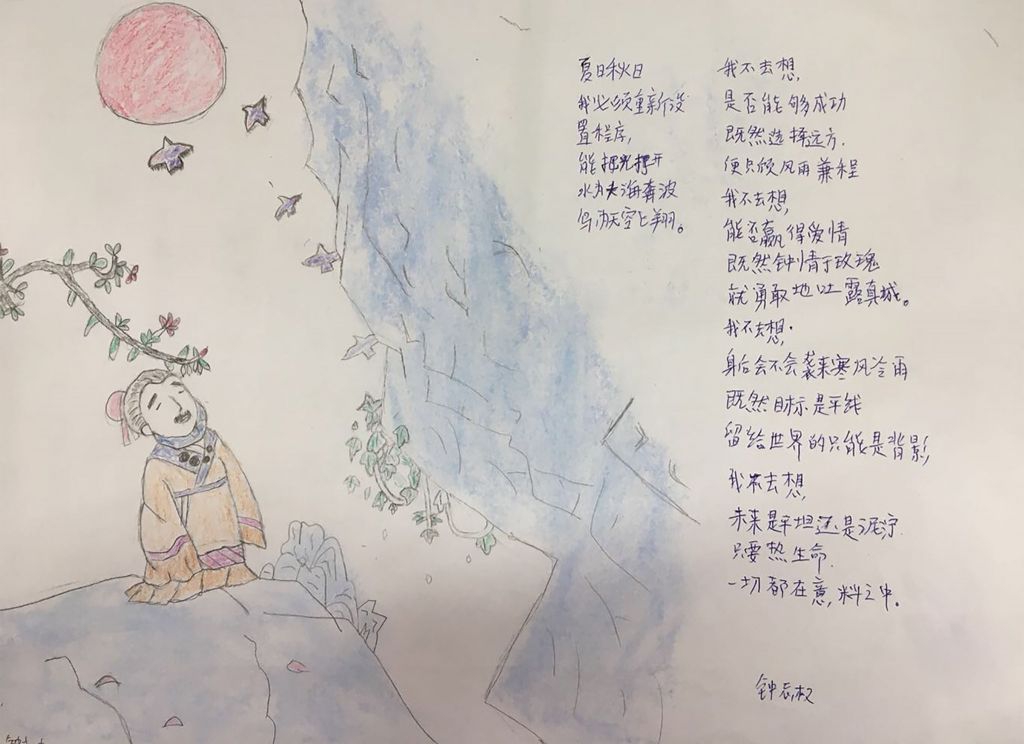 夏日秋日
我必须重新设
置程序,
能把光撑开
水为大海奔波
鸟为天空上翔。
我不去想,
是否能够成功
既然选择远方.
便只顾风雨兼程
我不去想,
能否赢得爱情
既然钟情于玫瑰
就勇敢地吐露真城。
我不去想,
身后会不会袭来寒风冷雨
既然目标是平线
留给世界的只能是背影,
我不去想,
未来是平坦还是泥泞
只要热生命.
一切都在意,料之中。
钟